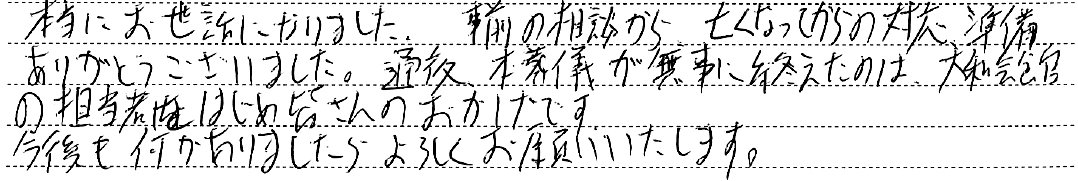 本当にお世話になりました。事前の相談から亡くなってからの対応、準備
ありがとうございました。通夜、本葬儀が無事に終えたのは、大和会館
の担当者はじめ皆さんのおかげです
今後も何かありましたらよろしくお願いいたします。